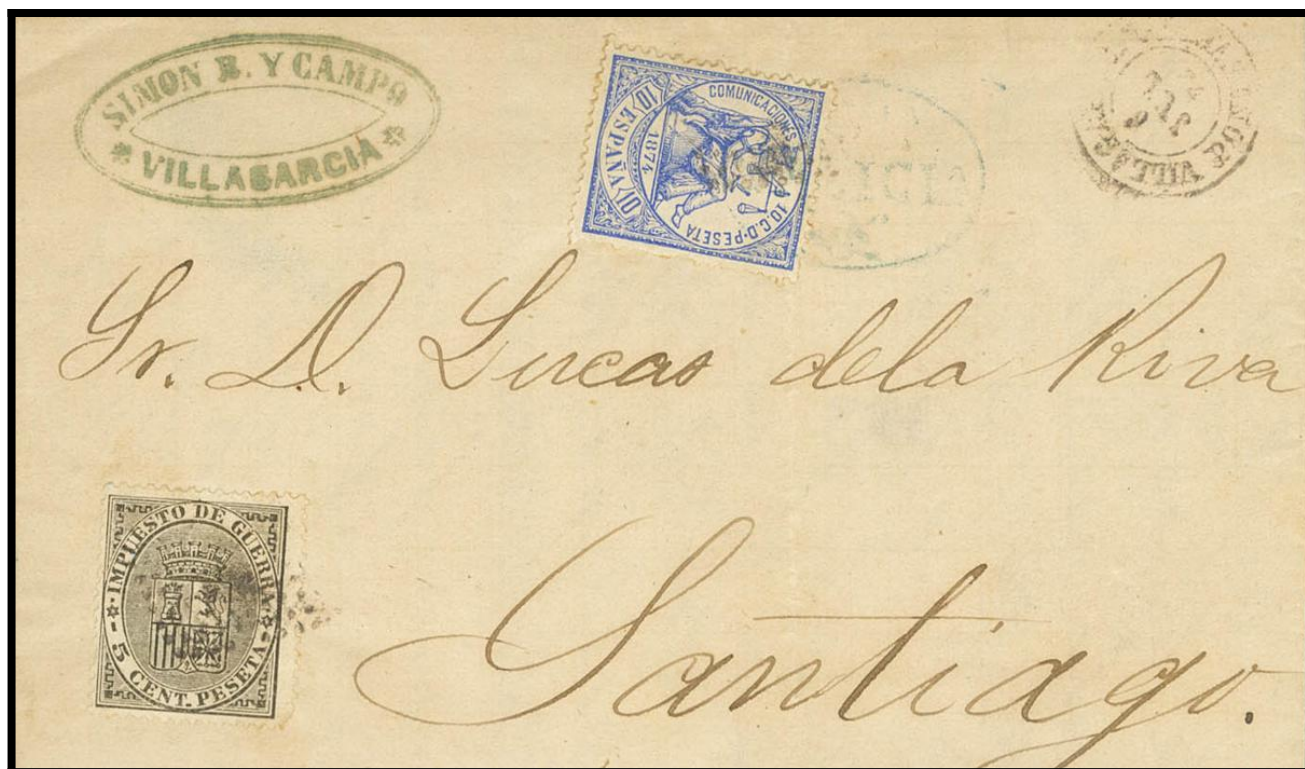 SIMON R. Y CAMPO
VILLAGARCIA
COMUNICACIONES
10 ESPAÑA 10
1874
10 C. D PESETA
Sr. D. Lucas dela Riva
IMPUESTO DE GUERRA
5 CENT. PESETA
Santiago.